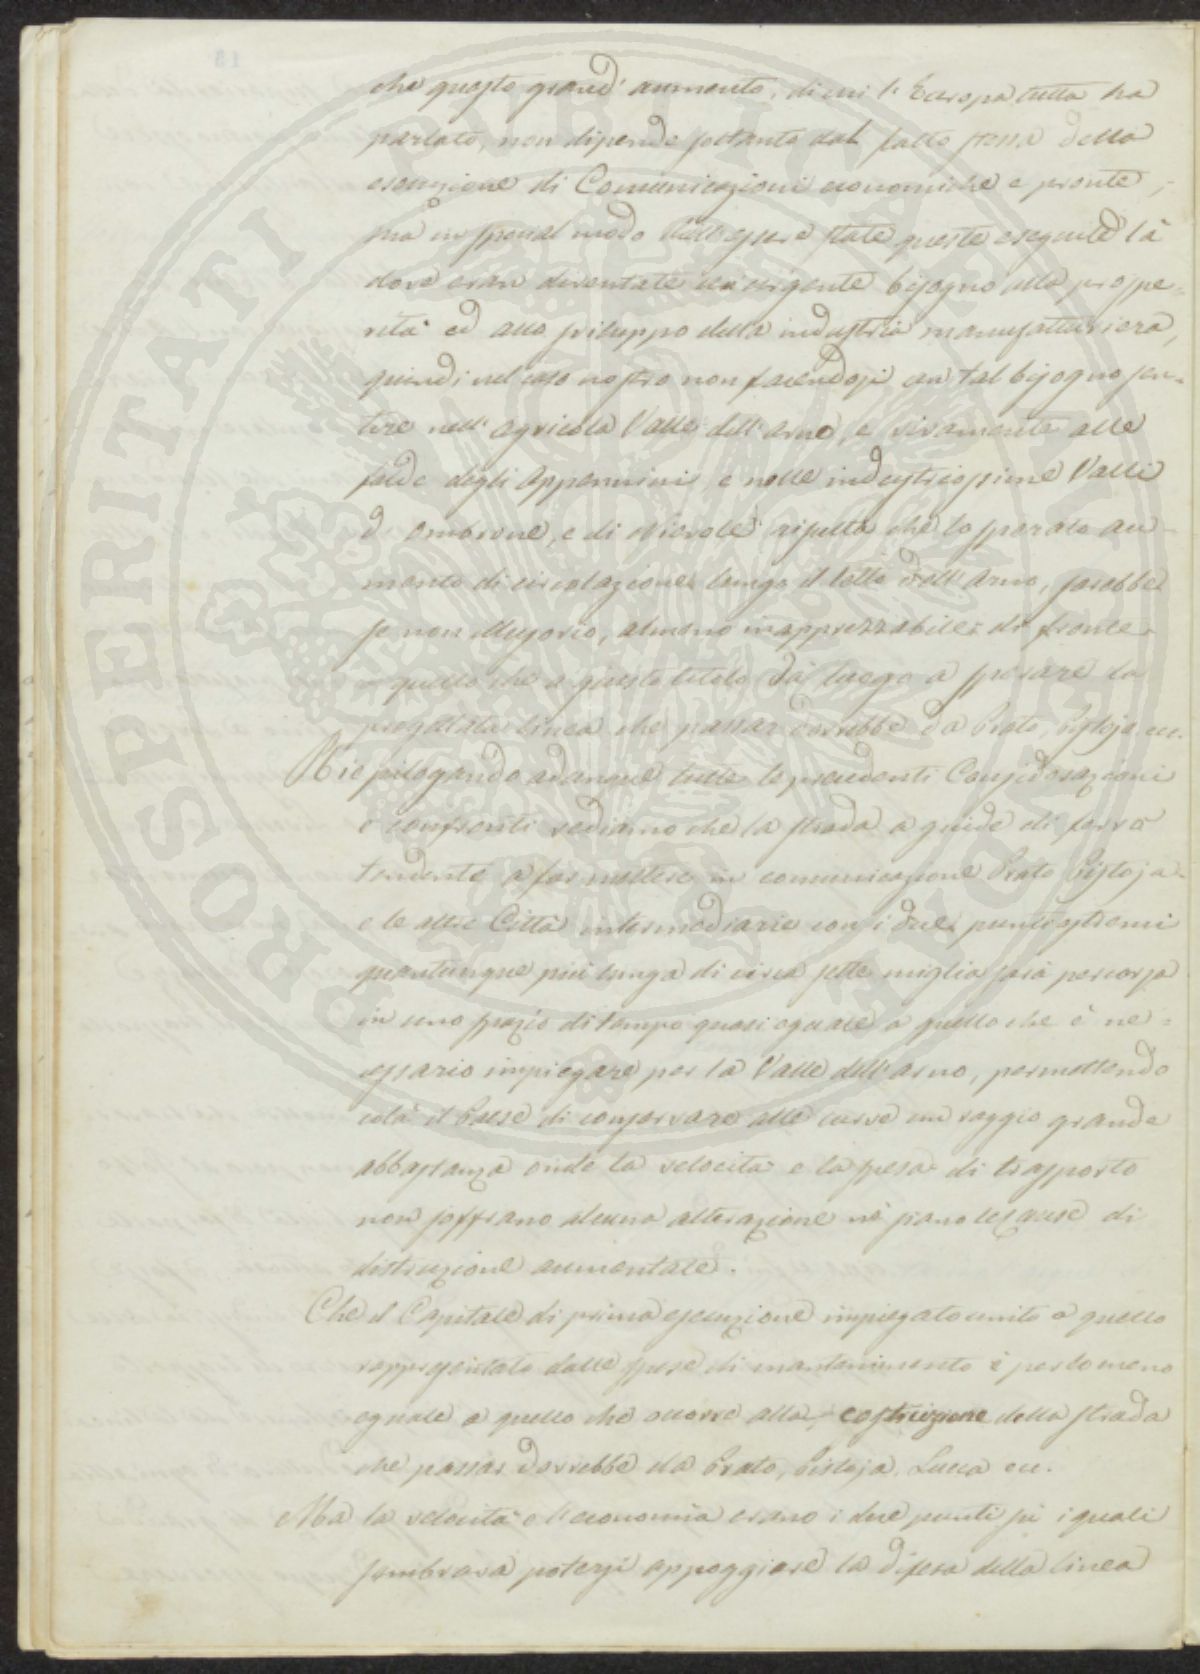 che questo grand' aumento, di cui l'Europa tutta ha
parlato, non dipende soltanto dal fatto stesso della
esecuzione di Comunicazioni economiche e pronte,
ma in special modo dall'essere state queste eseguite là
dove eran diventate un'urgente bisogno alla prospe=
rità ed allo sviluppo della industria manufatturiera,
quindi nel caso nostro non facendosi un tal bisogno sen=
tire nell'agricola Valle dell'Arno, e vivamente alle
falde degli Appennini e nelle industriosissime Valli
d'Ombrone, e di Nievole risulta che lo sperato au=
mento di circolazione lungo il letto dell'Arno, sarebbe
se non illusorio, almeno inapprezzabile di fronte
a quello che a giusto titolo dà luogo a sperare la
progettata linea che passar dovrebbe da Prato, Pistoja ec.
Riepilogando adunque tutte le precedenti Considerazioni
e confronti vediamo che la strada a guide di ferro
tendente a far mettere in comunicazione Prato Pistoja
e le altre Città intermediarie con i due punti estremi
quantunque più lunga di circa sette miglia sarà percorsa
in uno spazio di tempo quasi eguale a quello che è ne=
cessario impiegare per la Valle dell'Arno, permettendo
colà il Paese di conservare alle curve un raggio grande
abbastanza onde la velocità e la spesa di trasporto
non soffrano alcuna alterazione nè siano le cause di
distruzione aumentate.
Che il Capitale di prima esecuzione impiegato unito a quello
rappresentato dalle spese di mantenimento è per lo meno
eguale a quello che occorre alla costruzione della strada
che passar dovrebbe da Prato, Pistoja, Lucca ec.
Ma la velocità e l'economia erano i due punti su i quali
sembrava potersi appoggiare la difesa della linea
PROSPERITATI PUBLICAE